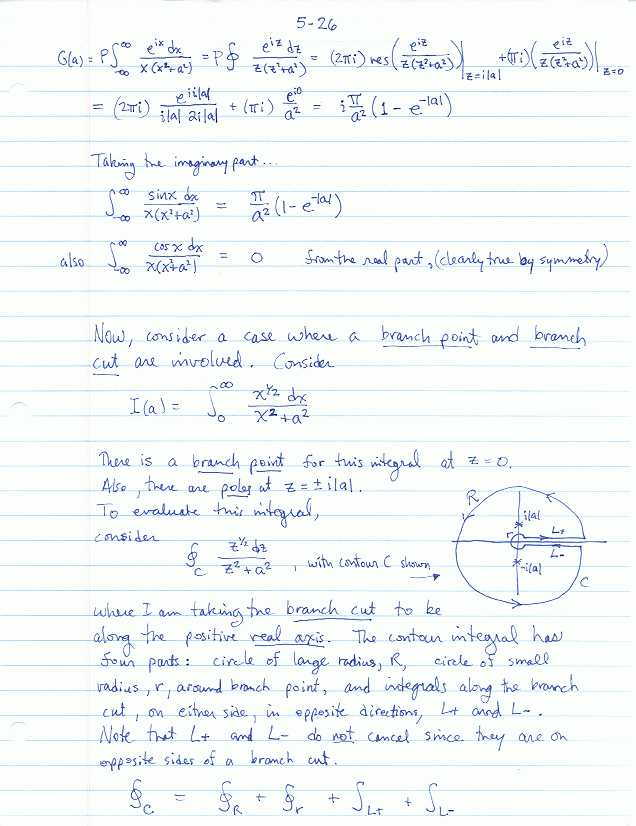 5-26
G(a) = P∫_{-∞}^{∞} e^{ix} dx / x(x²+a²) = P∮ e^{iz} dz / z(z²+a²) = (2πi) res( e^{iz} / z(z²+a²) )|_{z=i|a|} + (πi)( e^{iz} / z(z²+a²) )|_{z=0}
= (2πi) e^{ii|a|} / i|a| 2i|a| + (πi) e^{i0} / a² = i π/a² (1 - e^{-|a|})
Taking the imaginary part...
∫_{-∞}^{∞} sinx dx / x(x²+a²) = π/a² (1 - e^{-|a|})
also ∫_{-∞}^{∞} cos x dx / x(x²+a²) = 0 from the real part, (clearly true by symmetry)
Now, consider a case where a branch point and branch
cut are involved. Consider
I(a) = ∫_0^∞ x^{1/2} dx / x²+a²
There is a branch point for this integral at z=0.
Also, there are poles at z = ±i|a|.
To evaluate this integral,
consider
∮_C z^{1/2} dz / z²+a² , with contour C shown
R
i|a|
r
L+
L-
-i|a|
C
where I am taking the branch cut to be
along the positive real axis. The contour integral has
four parts: circle of large radius, R, circle of small
radius, r, around branch point, and integrals along the branch
cut, on either side, in opposite directions, L+ and L-.
Note that L+ and L- do not cancel since they are on
opposite sides of a branch cut.
∮_C = ∮_R + ∮_r + ∫_{L+} + ∫_{L-}